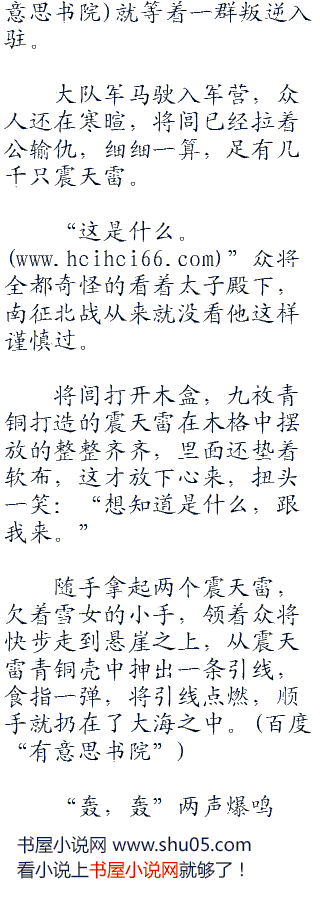 意思书院)就等着一群叛逆入
驻。
大队军马驶入军营，众
人还在寒暄，将闾已经拉着
公输仇，细细一算，足有几
千只震天雷。
“这是什么。
(www.hcihci66.com)”众将
全都奇怪的看着太子殿下，
南征北战从来就没看他这样
谨慎过。
将闾打开木盒，九枚青
铜打造的震天雷在木格中摆
放的整整齐齐，里面还垫着
软布，这才放下心来，扭头
一笑：“想知道是什么，跟
我来。”
随手拿起两个震天雷，
欠着雪女的小手，领着众将
快步走到悬崖之上，从震天
雷青铜壳中抻出一条引线，
食指一弹，将引线点燃，顺
手就扔在了大海之中。(百度
“有意思书院”)
“轰，轰”两声爆鸣
书屋小说网 www.shu05.com
看小说上书屋小说网就够了！